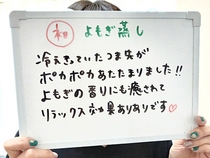 初 よもぎ蒸し
冷えきっていたつま先が
ポカポカあたたまりました!!
よもぎの香りにも癒されて
リラックス効果ありありです♡